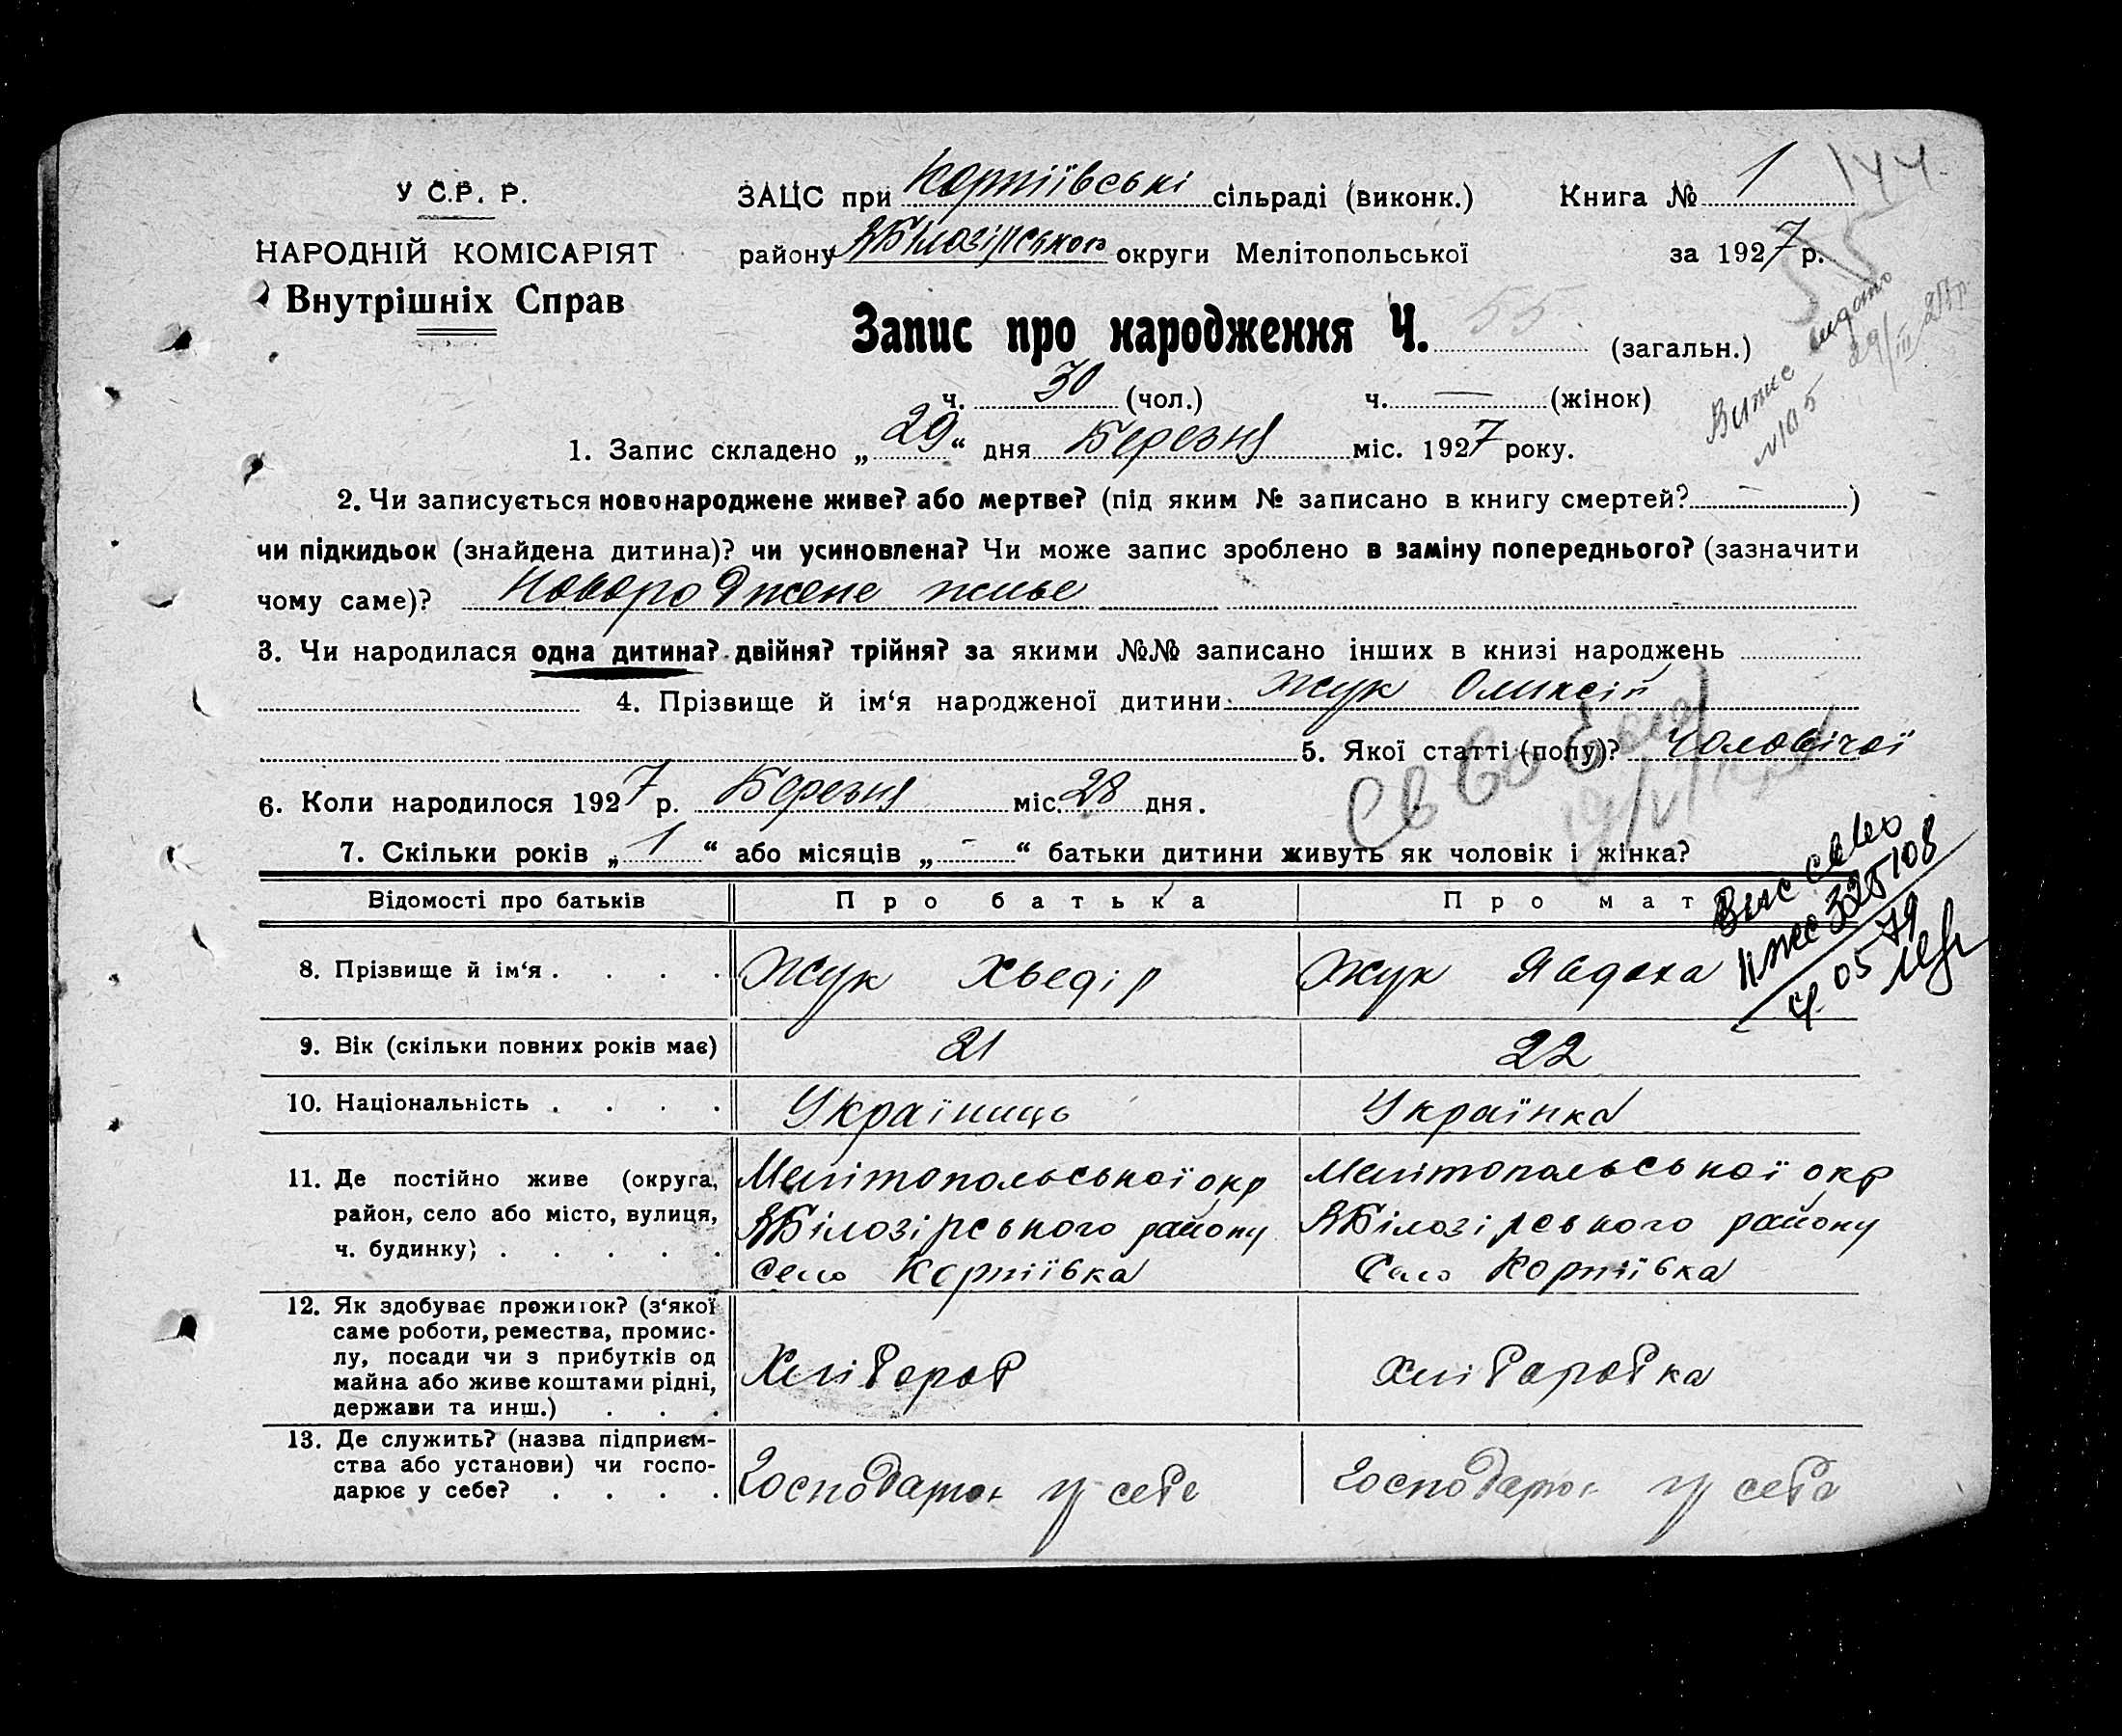 У С.Р. Р.
НАРОДНІЙ КОМІСАРІЯТ
Внутрішніх Справ
ЗАЦС при Корніївські сільраді (виконк.)
Книга № 1
144
району ВБілозірського округи Мелітопольської
за 1927 р.
55
Запис про народження Ч. 55 (загальн.)
ч. 30 (чол.) ч. — (жінок)
Випис видано
№105 29/III 27 р
1. Запис складено „29“ дня Березня міс. 1927 року.
2. Чи записується новонароджене живе? або мертве? (під яким № записано в книгу смертей? — )
чи підкидьок (знайдена дитина)? чи усиновлена? Чи може запис зроблено в заміну попереднього? (зазначити
чому саме)? Новороджене живе
3. Чи народилася одна дитина? двійня? трійня? за якими №№ записано інших в книзі народжень
4. Прізвище й ім‘я народженої дитини: Жук Оликсій
5. Якої статті (полу)? Чоловічої
6. Коли народилося 1927 р. Березня міс. 28 дня.
7. Скільки років „1“ або місяців „-“ батьки дитини живуть як чоловік і жінка?
Відомості про батьків
Про батька
Про мат
325108
05 79
8. Прізвище й ім‘я . . . .
Жук Хведір
Жук Явдоха
9. Вік (скільки повних років має)
21
22
10. Національність . . . .
Україниць
Українка
11. Де постійно живе (округа,
район, село або місто, вулиця,
ч. будинку) . . . . .
Мелітопольської окр
ВБілозірського району
Село Корніївка
Мелітопольської окр
ВБілозірського району
Село Корніївка
12. Як здобуває прожиток? (з‘якої
саме роботи, ремества, промис-
лу, посади чи з прибутків од
майна або живе коштами рідні,
держави та инш.) . . .
Хлібороб
Хліборобка
13. Де служить? (назва підприєм-
ства або установи) чи госпо-
дарює у себе? . . . .
Господарює у себе
Господарює у себе